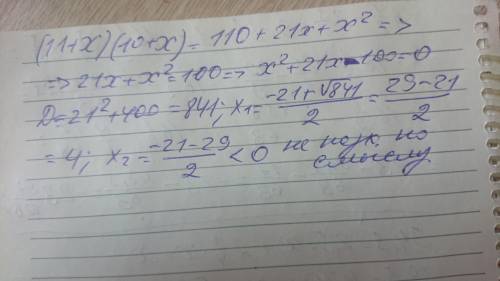 (11+x)(10+x)=110+21x+x²=>
=>21x+x²=100=>x²+21x-100=0
D=21²+400=841; x₁=(-21+√841)/2=(29-21)/2
=4; x₂=(-21-29)/2<0 не по смыслу